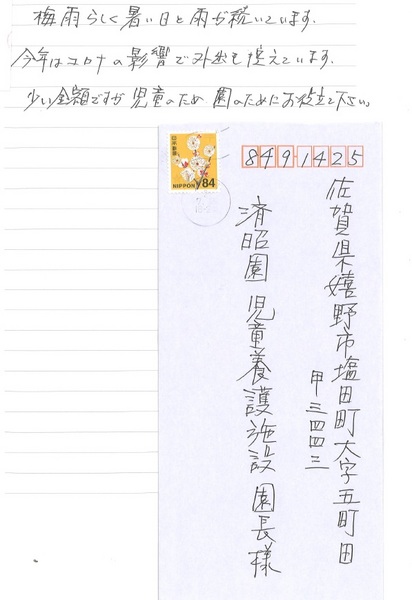 梅雨らしく暑い日と雨が続いています.
今年はコロナの影響で外出も控えています.
少い金額ですが児童のため 園のためにお役立て下さい。
日本郵便
NIPPON 84
849-1425
佐賀県嬉野市塩田町大字五町田
甲三四四三
済昭園 児童養護施設 園長様